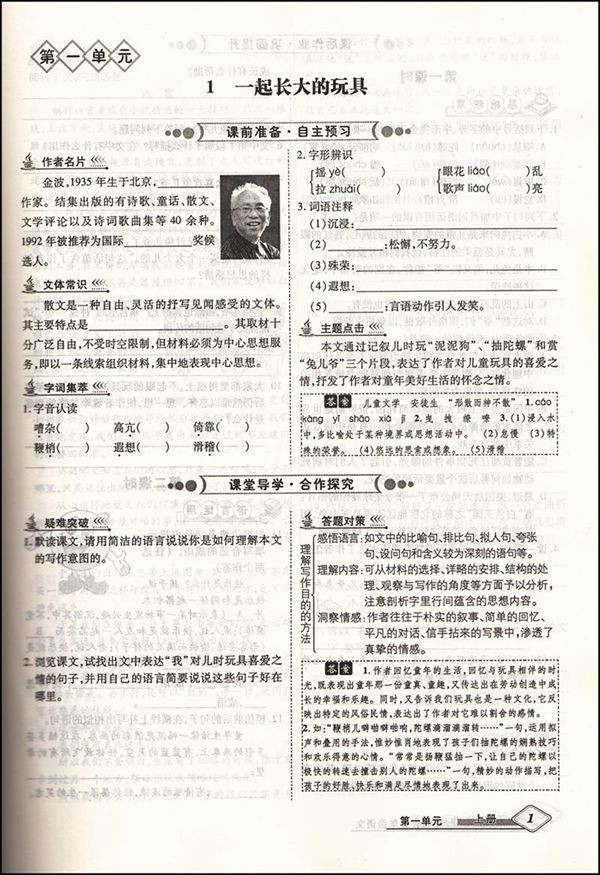 第一单元
1 一起长大的玩具
课前准备·自主预习
作者名片
金波,1935年生于北京,____________
作家。结集出版的有诗歌、童话、散文、
文学评论以及诗词歌曲集等40余种。
1992年被推荐为国际________奖侯
选人。
文体常识
散文是一种自由、灵活的抒写见闻感受的文体。
其主要特点是____________________。其取材十
分广泛自由,不受时空限制,但材料必须为中心思想服
务,即以一条线索组织材料,集中地表现中心思想。
字词集萃
1.字音认读
嘈杂( ) 高亢( ) 倚靠( )
鞭梢( ) 遐想( ) 滑稽( )
2.字形辨识
摇yè( )
拉zhuài( )
眼花liáo( )乱
歌声liáo( )亮
3.词语注释
(1)沉浸:____________________
(2)________:松懈,不努力。
(3)殊荣:____________________
(4)遐想:____________________
(5)________:言语动作引人发笑。
主题点击
本文通过记叙儿时玩“泥泥狗”、“抽陀螺”和赏
“兔儿爷”三个片段,表达了作者对儿童玩具的喜爱之
情,抒发了作者对童年美好生活的怀念之情。
答案 儿童文学 安徒生 “形散而神不散” 1.cáo
kàng yǐ shāo xiá jī 2.曳 拽 缭 嘹 3.(1)浸入水
中,多比喻处于某种境界或思想活动中。 (2)怠慢 (3)特
殊的荣誉。 (4)悠远的思索或想象。 (5)滑稽
课堂导学·合作探究
疑难突破
1.默读课文,请用简洁的语言说说你是如何理解本文
的写作意图的。
2.浏览课文,试找出文中表达“我”对儿时玩具喜爱之
情的句子,并用自己的语言简要说说这些句子好在
哪里。
答题对策
理解写作目的的方法
感悟语言:如文中的比喻句、排比句、拟人句、夸张
句、设问句和含义较为深刻的语句等。
理解内容:可从材料的选择、详略的安排、结构的处
理、观察与写作的角度等方面予以分析,
注意剖析字里行间蕴含的思想内容。
洞察情感:作者往往于朴实的叙事、简单的回忆、
平凡的对话、信手拈来的写景中,渗透了
真挚的情感。
答案 1.作者回忆童年的生活,回忆与玩具相伴的时
光,既表现出童年那一份童真、童趣,又传达出在劳动创造中成
长的幸福和乐趣。同时,又告诉我们玩具也是一种文化,它反
映出特定的风俗民情,表达出了作者对它难以割舍的感情。
2.如:“鞭梢儿噼啪噼啪响,陀螺滴溜溜溜转……”一句,运用拟
声和叠用的手法,惟妙惟肖地表现了孩子们抽陀螺的娴熟技巧
和欢乐得意的心情。“常常是扬鞭猛抽一下,让自己的陀螺以
极快的转速去撞击别人的陀螺……”一句,精妙的动作描写,把
孩子的好胜、快乐和满足尽情地表现了出来。
第一单元 上册 1